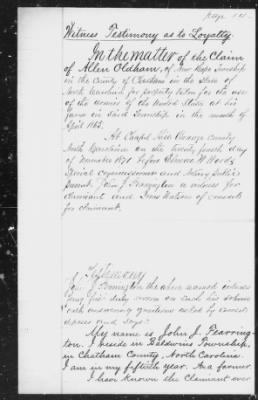 Witness Testimony as to Loyalty
In the matter of the Claim
of Allen Oldham, of New Hope Township
in the County of Chatham in the State of
North Carolina for property taken for the use
of the armies of the United States at his
farm in said Township in the month of
April 1865.
At Chapel Hill Orange County
North Carolina on the twenty fourth day
of November 1871 before
Special commissioner and Notary Public
John J. Fearrington a witness for
claimant and of counsel
for claimant.
Testimony
John J. Fearrington the above named witness
being first duly sworn on said his solemn
oath answering questions asked by counsel
deposes and says:
My name is John J. Fearring-
ton. I reside in Baldwins Township,
in Chatham County, North Carolina.
I am in my fiftieth year. Am a farmer.
I have known the Claimant over